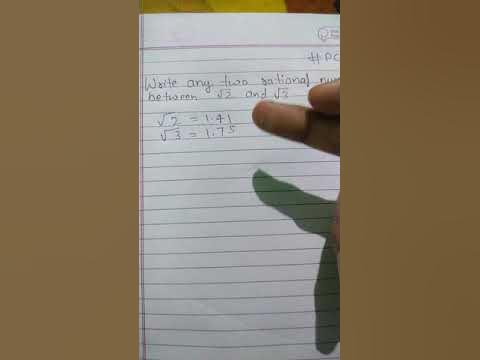 # PC
Write any two rational num
between √2 and √3
√2 = 1.41
√3 = 1.75